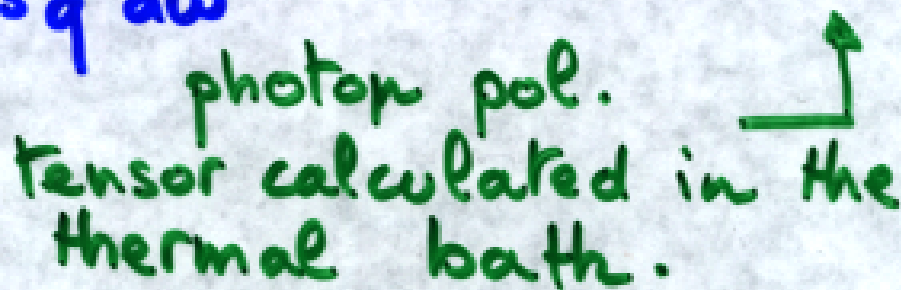 photon pol.
tensor calculated in the
thermal bath.